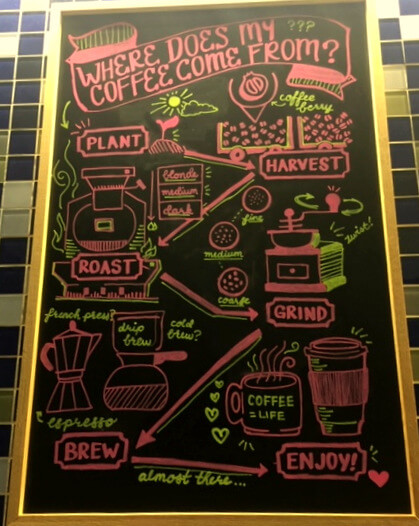 WHERE DOES MY ???
COFFEE COME FROM?
coffee
berry
PLANT
HARVEST
blonde
medium
dark
fine
medium
coarse
twist!
ROAST
GRIND
french press?
drip
brew
cold
brew?
espresso
COFFEE
= LIFE
BREW
almost there...
ENJOY!